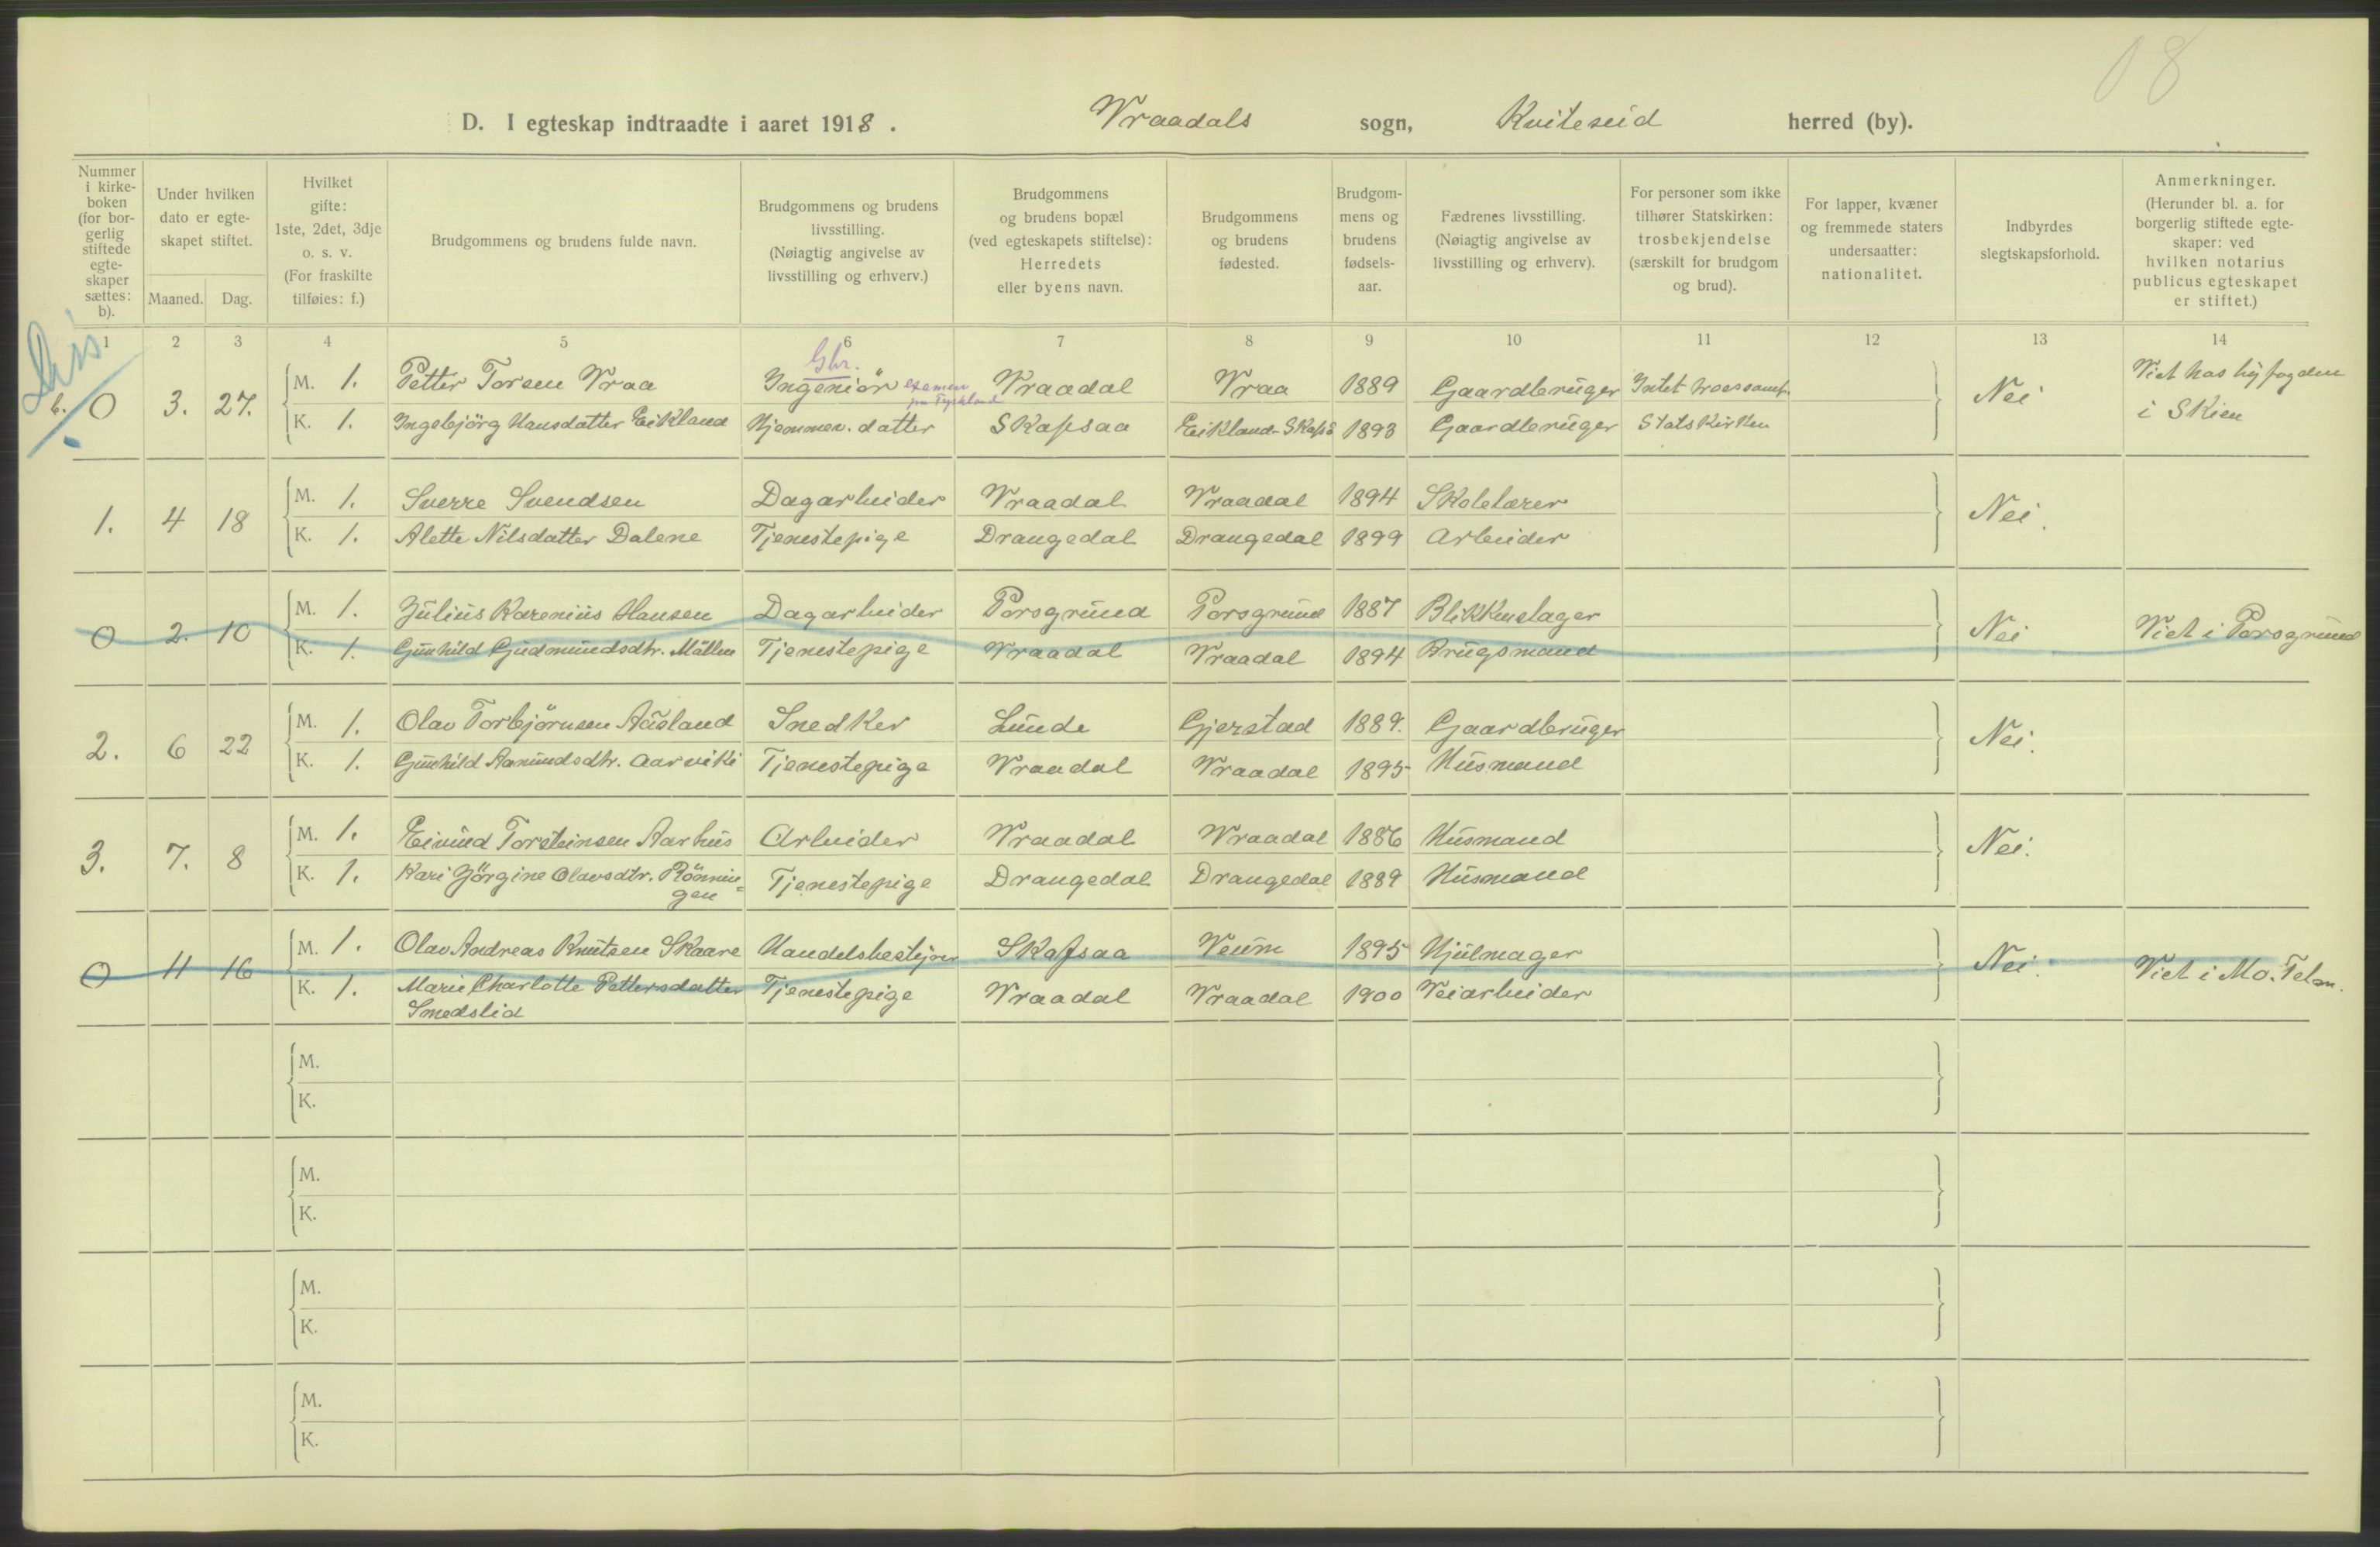 08
D. I egteskap indtraadte i aaret 1918. Vraadals sogn, Kviteseid herred (by).
Nummer i kirke- boken (for bor- gerlig stiftede egte- skaper sættes: b).
Under hvilken dato er egte- skapet stiftet.
Maaned. Dag.
Hvilket gifte: 1ste, 2det, 3dje o. s. v. (For fraskilte tilføies: f.)
Brudgommens og brudens fulde navn.
Brudgommens og brudens livsstilling. (Nøiagtig angivelse av livsstilling og erhverv.)
Brudgommens og brudens bopæl (ved egteskapets stiftelse): Herredets eller byens navn.
Brudgommens og brudens fødested.
Brudgom- mens og brudens fødsels- aar.
Fædrenes livsstilling. (Nøiagtig angivelse av livsstilling og erhverv).
For personer som ikke tilhører Statskirken: trosbekjendelse (særskilt for brudgom og brud).
For lapper, kvæner og fremmede staters undersaatter: nationalitet.
Indbyrdes slegtskapsforhold.
Anmerkninger. (Herunder bl. a. for borgerlig stiftede egte- skaper: ved hvilken notarius publicus egteskapet er stiftet.)
1 2 3 4 5 6 7 8 9 10 11 12 13 14
b. 0 3. 27. M. 1. Petter Torsen Vraa Ingeniör examen fra Tyskland Vraadal Vraa 1889 Gaardbruger Intet trossamf. Nei Viet hos byfogden
K. 1. Ingebjörg Hansdatter Eikland Hjemmev. datter Skafsaa Eikland-Skafså 1893 Gaardbruger Statskirken i Skien
1. 4 18 M. 1. Sverre Svendsen Dagarbeider Vraadal Vraadal 1894 Skolelærer Nei.
K. 1. Alette Nilsdatter Dalene Tjenestepige Drangedal Drangedal 1899 Arbeider
0 2. 10 M. 1. Julius Karenius Hansen Dagarbeider Porsgrund Porsgrund 1887 Blikkenslager Nei Viet i Porsgrund
K. 1. Gunhild Gudmundsdtr. Mällen Tjenestepige Vraadal Vraadal 1894 Brugsmand
2. 6 22 M. 1. Olav Torbjörnsen Aasland Snedker Lunde Gjerstad 1889. Gaardbruger Nei.
K. 1. Gunhild Aamundsdtr. Aarviki Tjenestepige Vraadal Vraadal 1895 Husmand
3. 7. 8 M. 1. Eivind Torsteinsen Aarhus Arbeider Vraadal Vraadal 1886 Husmand Nei.
K. 1. Kari Jörgine Olavsdtr. Rönnin= gen Tjenestepige Drangedal Drangedal 1889 Husmand
0 11 16 M. 1. Olav Andreas Knutsen Skaare Handelsbestyrer Skafsaa Veum 1895 Hjulmager Nei. Viet i Mo. Telem.
K. 1. Marie Charlotte Pettersdatter Tjenestepige Vraadal Vraadal 1900 Veiarbeider
Smedslid
M.
K.
M.
K.
M.
K.
M.
K.